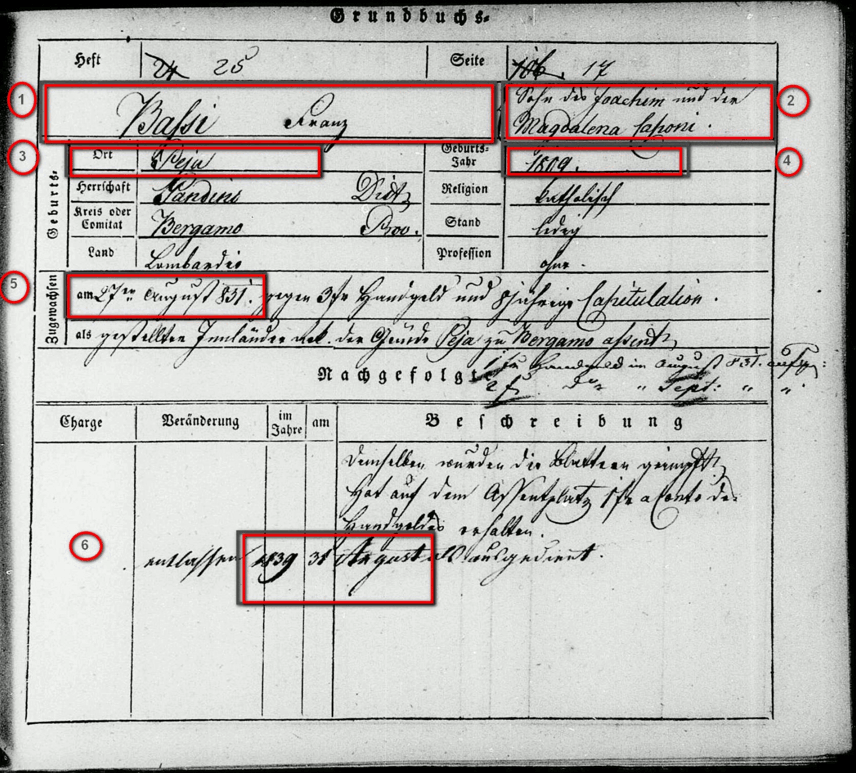 Grundbuchs-
Heft 24 25 Seite 106. 17
1 Bassi Franz Sohn des Joachim und der 2
Magdalena Caponi.
3 Ort Peja Geburts-Jahr 1809. 4
Geburts-
Herrschaft Gandino Dist. Religion katholisch
Kreis oder Comitat Bergamo Prov. Stand ledig
Land Lombardie Profession ohne.
5 Zugewachsen am 27ten August 831. gegen 3 fr Handgeld und 8jährige Capitulation.
als gestellten Innländer der Gemeinde Peja zu Bergamo assent.
1 fr Handgeld im August 831.
Nachgefolgt 2 f " Sept: " "
Charge Veränderung im Jahre am Beschreibung
Demselben wurden die Blattern geimpft.
Hat auf dem Assentplatz 1 fr a Conto des
Handgeldes erhalten.
6 entlassen 839 31 August als ausgedient.